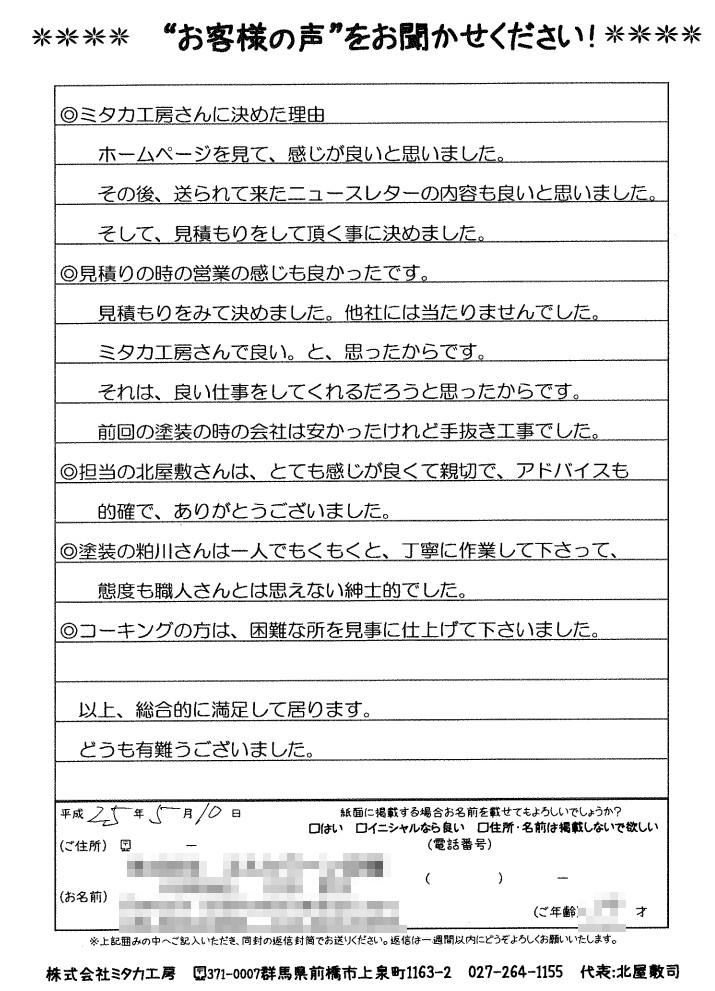 ＊＊＊＊ “お客様の声”をお聞かせください！＊＊＊＊
◎ミタカ工房さんに決めた理由
ホームページを見て、感じが良いと思いました。
その後、送られて来たニュースレターの内容も良いと思いました。
そして、見積もりをして頂く事に決めました。
◎見積りの時の営業の感じも良かったです。
見積もりをみて決めました。他社には当たりませんでした。
ミタカ工房さんで良い。と、思ったからです。
それは、良い仕事をしてくれるだろうと思ったからです。
前回の塗装の時の会社は安かったけれど手抜き工事でした。
◎担当の北屋敷さんは、とても感じが良くて親切で、アドバイスも
的確で、ありがとうございました。
◎塗装の粕川さんは一人でもくもくと、丁寧に作業して下さって、
態度も職人さんとは思えない紳士的でした。
◎コーキングの方は、困難な所を見事に仕上げて下さいました。
以上、総合的に満足して居ります。
どうも有難うございました。
平成 25 年 5 月 10 日 紙面に掲載する場合お名前を載せてもよろしいでしょうか？
□はい □イニシャルなら良い □住所・名前は掲載しないで欲しい
（ご住所） 〒 － （電話番号）
（ ） －
（お名前）
（ご年齢 才
※上記囲みの中へご記入いただき、同封の返信封筒でお送りください。返信は一週間以内にどうぞよろしくお願いいたします。
株式会社ミタカ工房 〒371-0007群馬県前橋市上泉町1163-2 027-264-1155 代表:北屋敷司